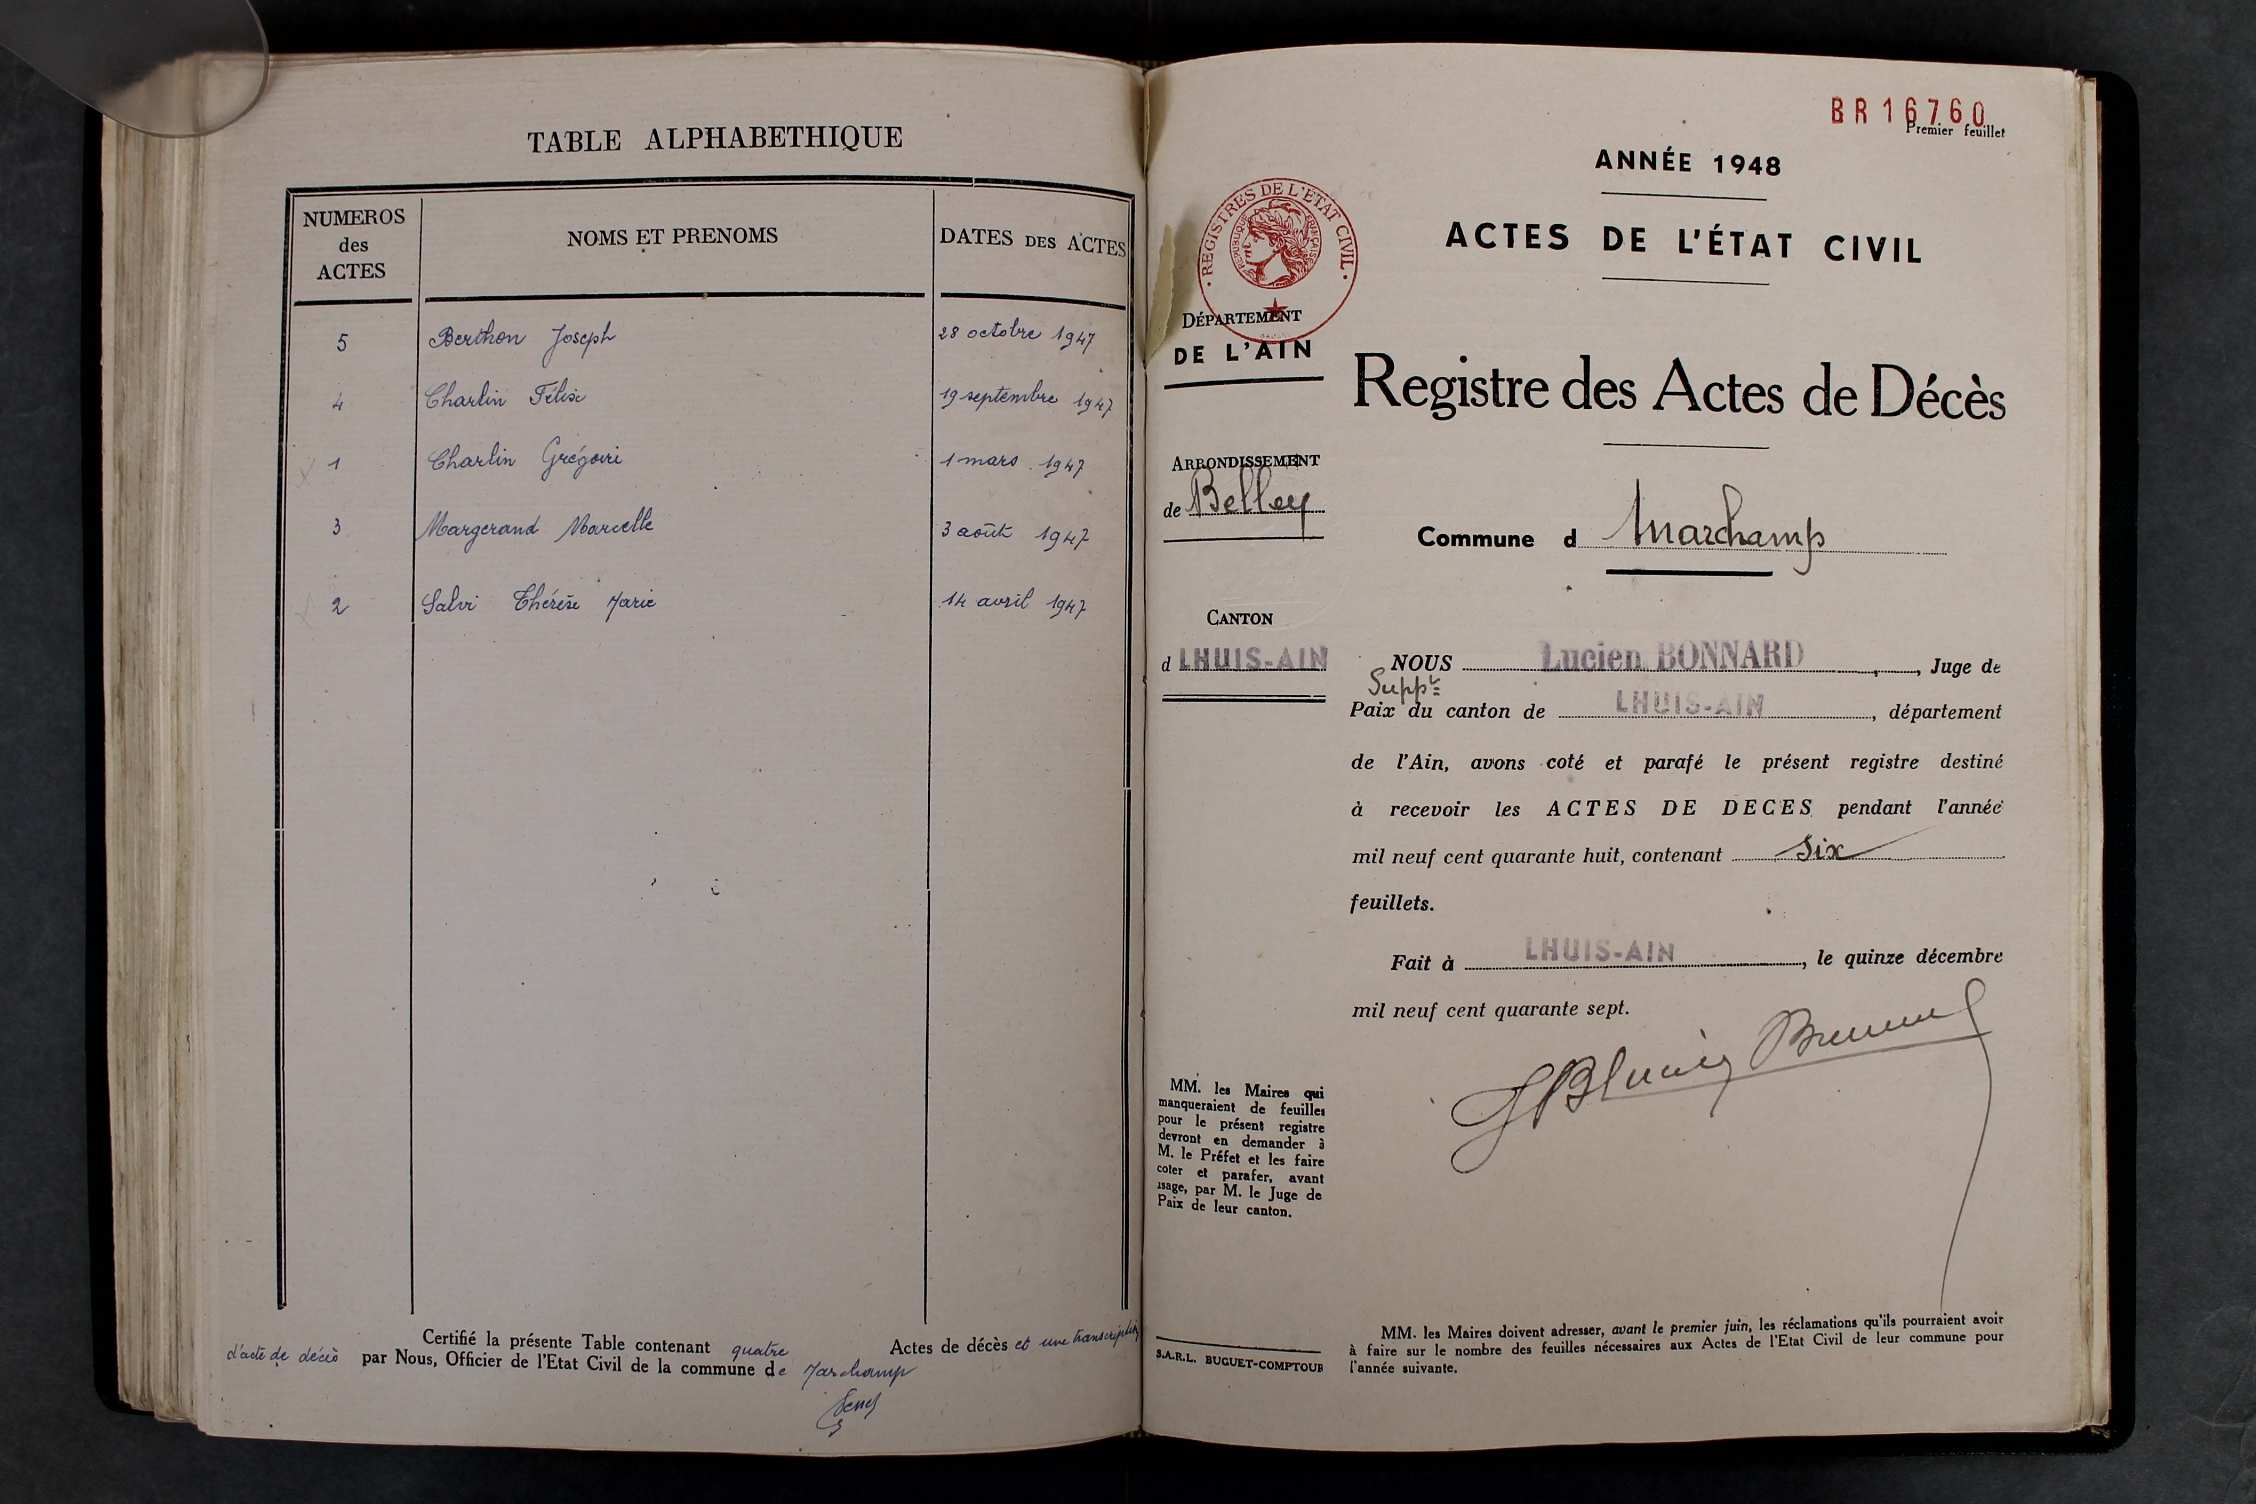 TABLE ALPHABETHIQUE
NUMEROS des ACTES NOMS ET PRENOMS DATES DES ACTES
5 Berthon Joseph 28 octobre 1947
4 Charlin Félix 19 septembre 1947
1 Charlin Grégoire 1 mars 1947
3 Margerand Marcelle 3 août 1947
2 Salvi Thérèse Marie 14 avril 1947
Certifié la présente Table contenant quatre Actes de décès et une transcription
d'acte de décès par Nous, Officier de l'Etat Civil de la commune de Marchamp
BR16760
Premier feuillet
ANNÉE 1948
ACTES DE L'ÉTAT CIVIL
REGISTRES DE L'ETAT CIVIL
REPUBLIQUE FRANÇAISE
DÉPARTEMENT
DE L'AIN
Registre des Actes de Décès
ARRONDISSEMENT
de Belley
Commune d Marchamp
CANTON
d LHUIS-AIN
NOUS Lucien BONNARD, Juge de
Suppt
Paix du canton de LHUIS-AIN, département
de l'Ain, avons coté et parafé le présent registre destiné
à recevoir les ACTES DE DECES pendant l'année
mil neuf cent quarante huit, contenant six
feuillets.
Fait à LHUIS-AIN, le quinze décembre
mil neuf cent quarante sept.
MM. les Maires qui
manqueraient de feuilles
pour le présent registre
devront en demander à
M. le Préfet et les faire
coter et parafer, avant
usage, par M. le Juge de
Paix de leur canton.
S.A.R.L. BUGUET-COMPTOUR
MM. les Maires doivent adresser, avant le premier juin, les réclamations qu'ils pourraient avoir
à faire sur le nombre des feuilles nécessaires aux Actes de l'Etat Civil de leur commune pour
l'année suivante.